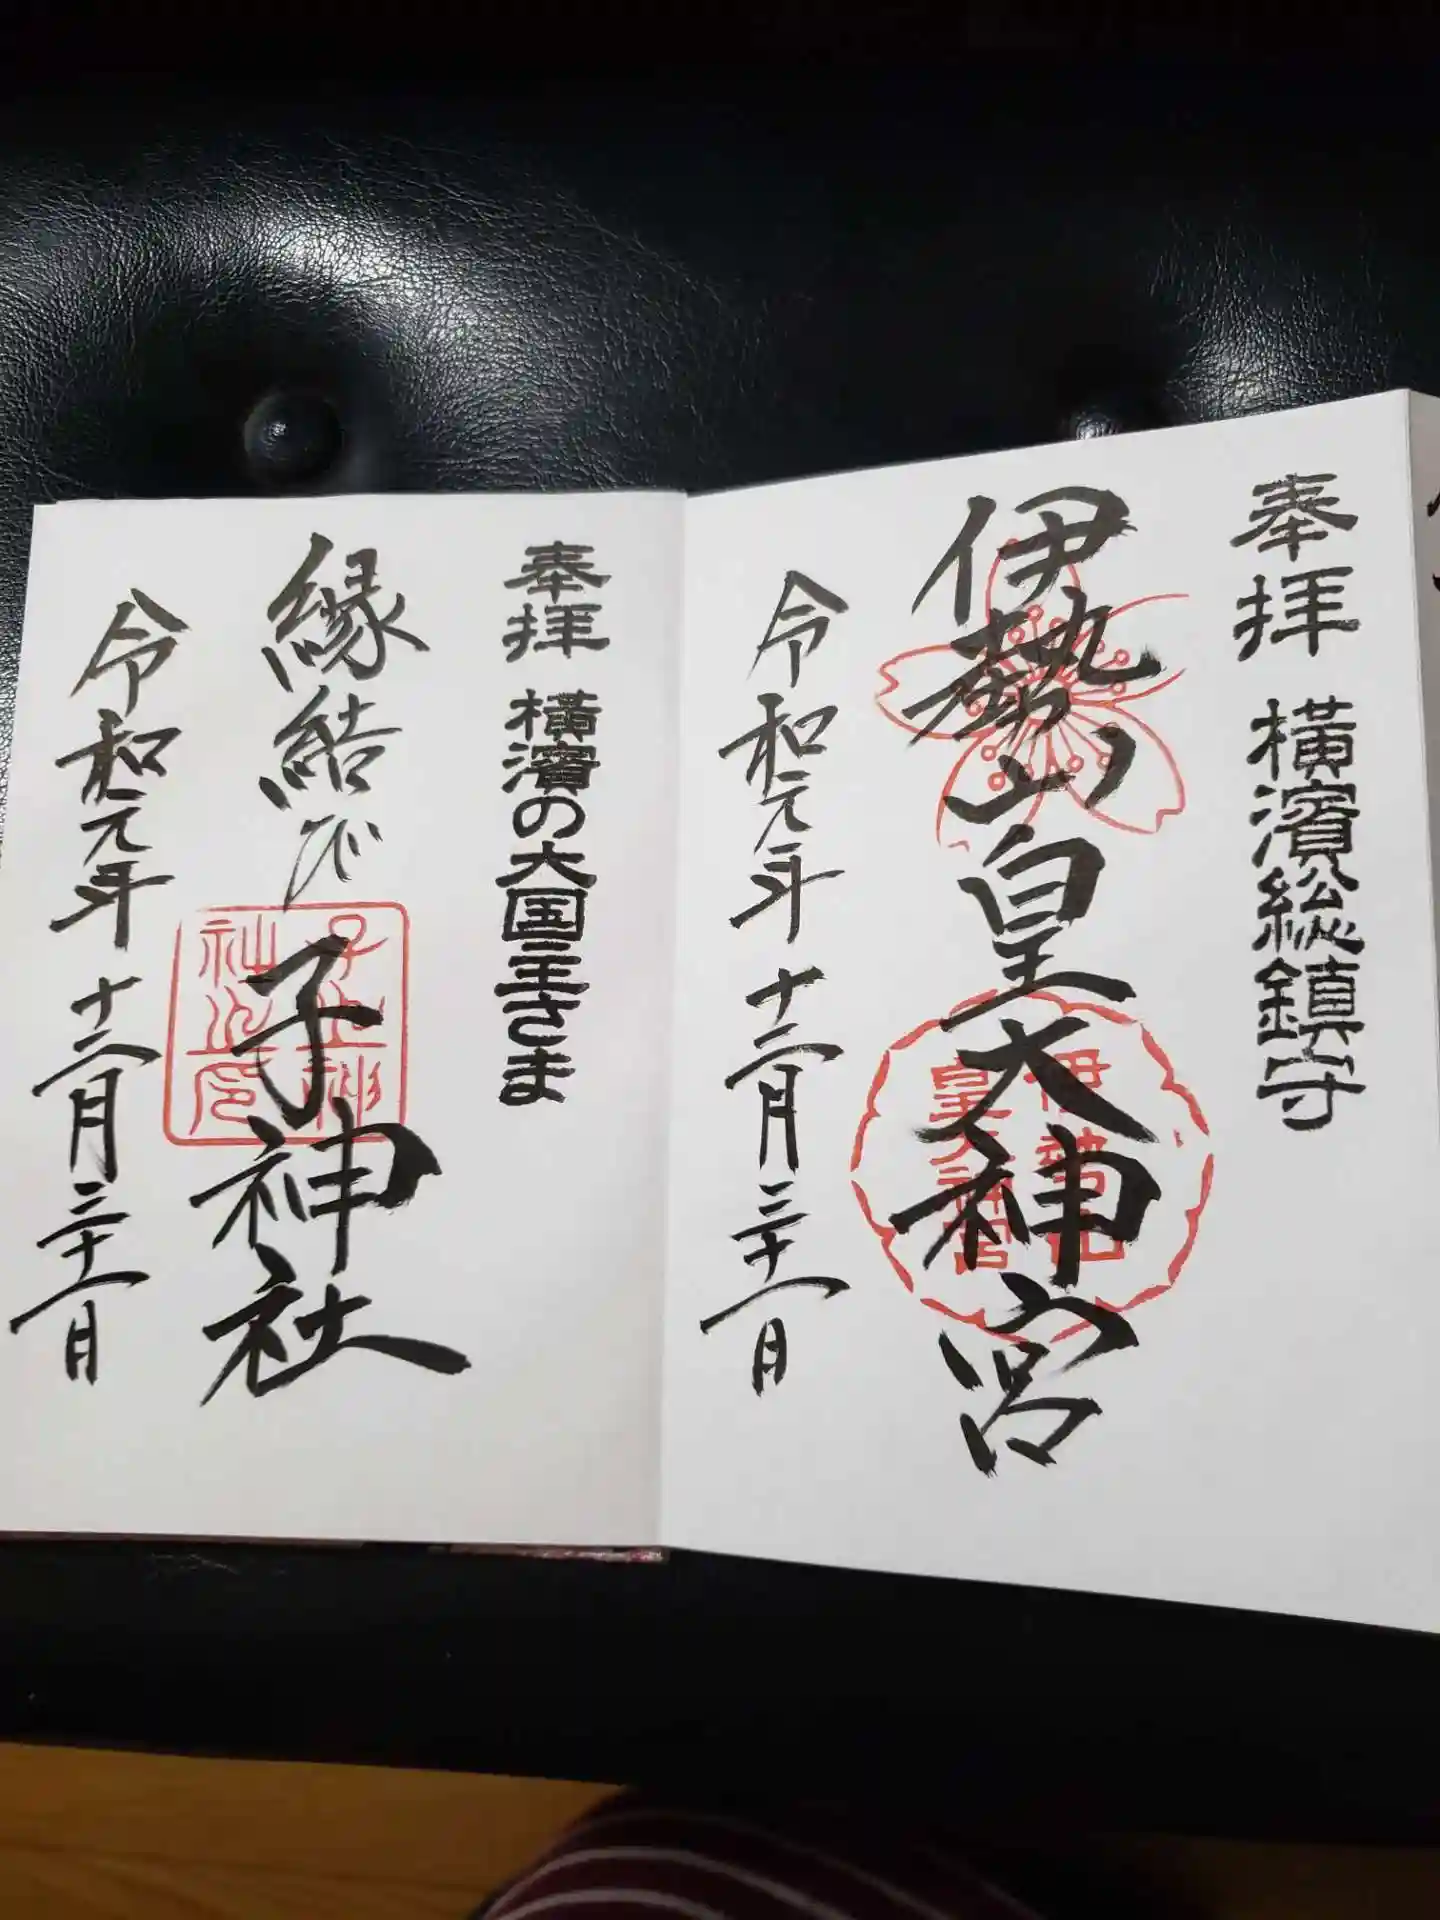 奉拝 横濱総鎮守
伊勢山皇大神宮
伊勢山
皇大神宮
令和元年十二月三十一日
奉拝 横濱の大国主さま
縁結び 子神社
子之神
社之印
令和元年十二月三十一日